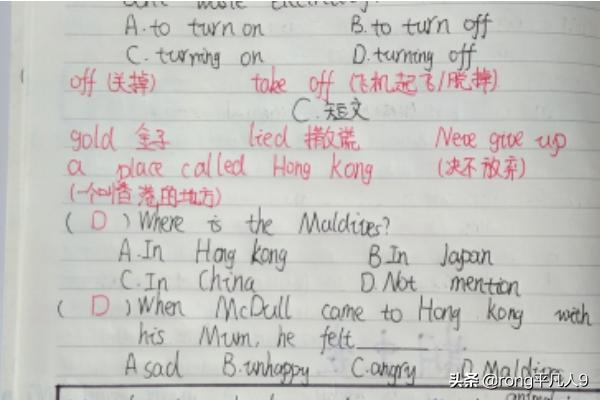 A.to turn on B.to turn off
C.turning on D.turning off
off (关掉) take off (飞机起飞/脱掉)
C.短文
gold 金子 lied 撒谎 Neve give up
a place called Hong Kong (决不放弃)
(一个叫香港的地方)
( D ) Where is the Maldives?
A.In Hong kong B.In Japan
C.In China D.Not mention
( D ) When McDull came to Hong kong with
his Mum, he felt______
A sad B.unhappy C.angry D.Maldives
头条 @rong平凡人9